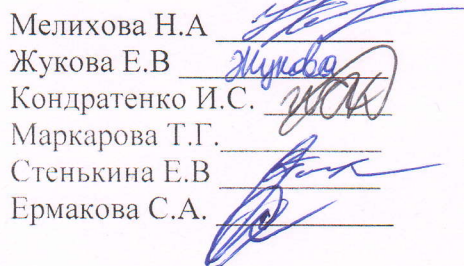 Мелихова Н.А
Жукова Е.В Жукова
Кондратенко И.С.
Маркарова Т.Г.
Стенькина Е.В
Ермакова С.А.